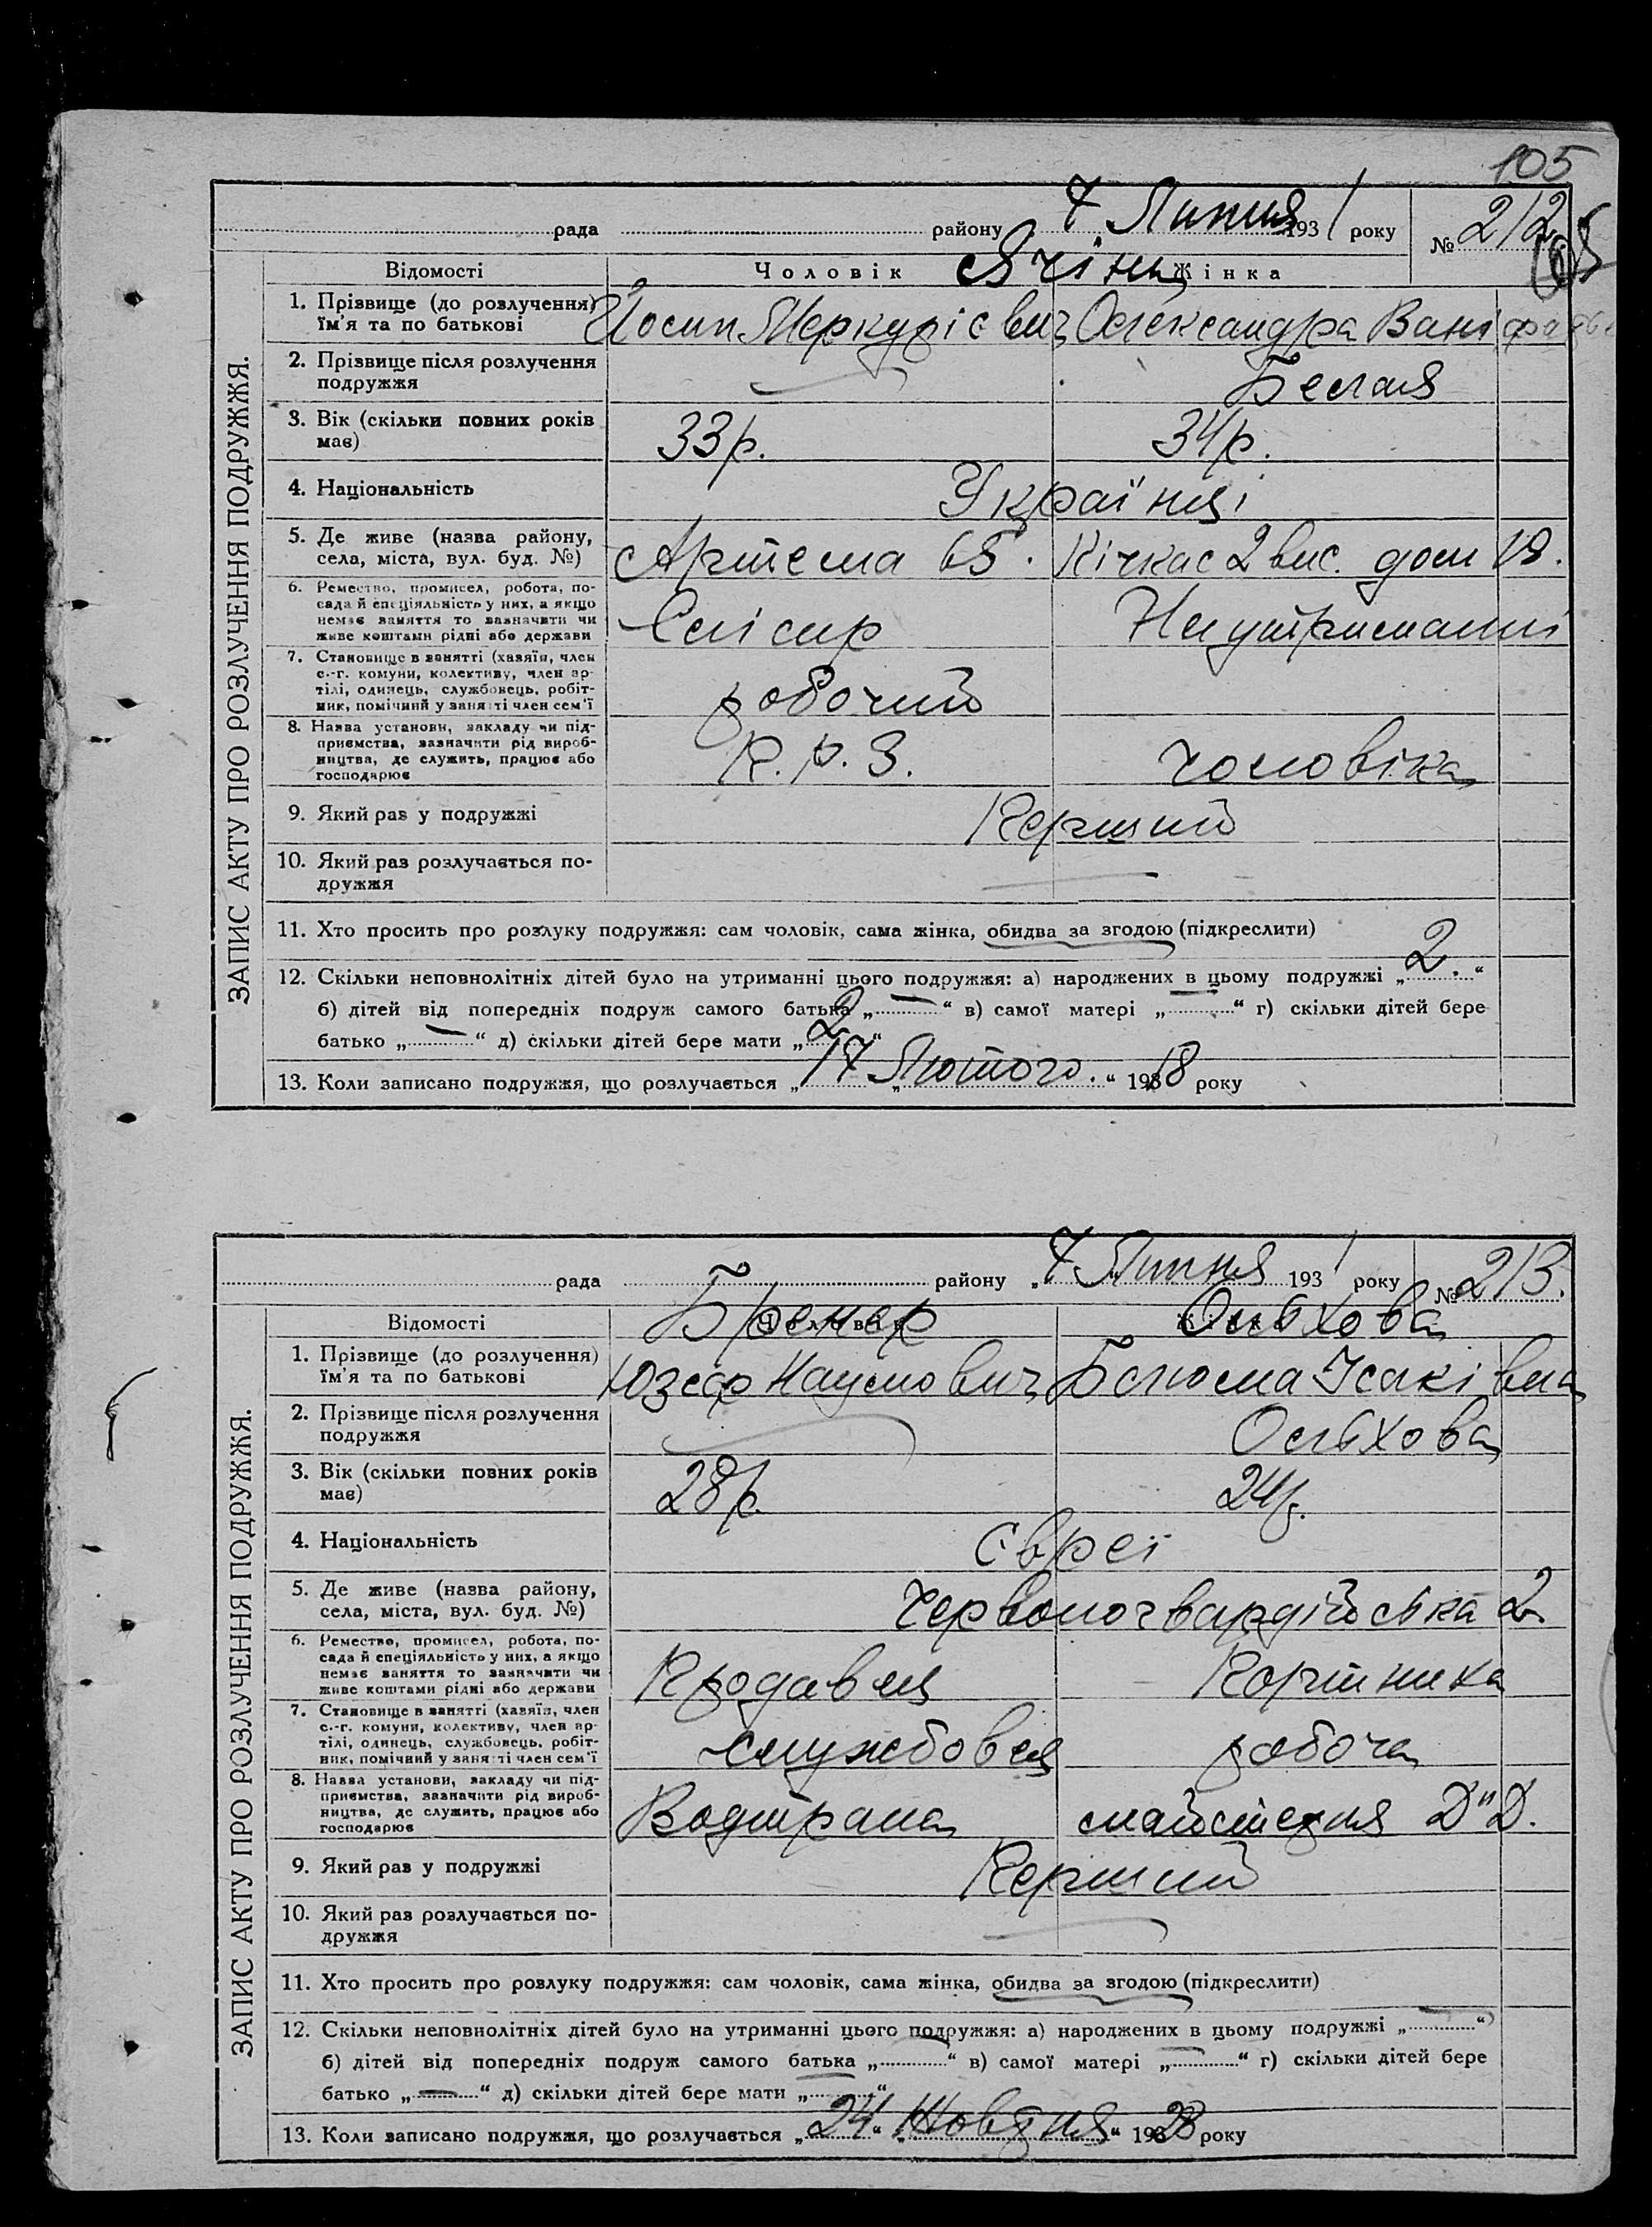 105
рада району 7 Липня 1931 року № 212
ЗАПИС АКТУ ПРО РОЗЛУЧЕННЯ ПОДРУЖЖЯ.
Відомості Чоловік Жінка
1. Прізвище (до розлучення) Йосип Меркурієвич Олександра
їм'я та по батькові
2. Прізвище після розлучення Белая
подружжя
3. Вік (скільки повних років 33 р. 34 р.
має)
4. Національність Українці
5. Де живе (назва району, Артема 65. Кічкас 2 вис. дом 19.
села, міста, вул. буд. №)
6. Ремество, промисел, робота, по-
сада й спеціяльність у них, а якщо
немає заняття то зазначити чи Слісар На утриманні
живе коштами рідні або держави
7. Становище в занятті (хазяїн, член
с.-г. комуни, колективу, член ар-
тілі, одинець, службовець, робіт- робочий
ник, помічний у занятті член сем'ї
8. Назва установи, закладу чи під-
приємства, зазначити рід вироб- К. р. З. чоловіка
ництва, де служить, працює або
господарює
9. Який раз у подружжі Перший
10. Який раз розлучається по-
дружжя
11. Хто просить про розлуку подружжя: сам чоловік, сама жінка, обидва за згодою (підкреслити)
12. Скільки неповнолітніх дітей було на утриманні цього подружжя: а) народжених в цьому подружжі „2.“
б) дітей від попередніх подруж самого батька „—“ в) самої матері „ “ г) скільки дітей бере
батько „—“ д) скільки дітей бере мати „2“
13. Коли записано подружжя, що розлучається „17 Лютого.“ 1918 року
рада району „7 Липня 1931 року № 213.
ЗАПИС АКТУ ПРО РОЗЛУЧЕННЯ ПОДРУЖЖЯ.
Бренер Ольхова
Відомості Чоловік Жінка
1. Прізвище (до розлучення) Юзеф Наумович Ісаківна
їм'я та по батькові
2. Прізвище після розлучення Ольхова
подружжя
3. Вік (скільки повних років 28 р. 24 р.
має)
4. Національність Євреї
5. Де живе (назва району, Червоногвардійська 2
села, міста, вул. буд. №)
6. Ремество, промисел, робота, по-
сада й спеціяльність у них, а якщо
немає заняття то зазначити чи Продавец
живе коштами рідні або держави
7. Становище в занятті (хазяїн, член
с.-г. комуни, колективу, член ар-
тілі, одинець, службовець, робіт- службовец робоча
ник, помічний у занятті член сем'ї
8. Назва установи, закладу чи під-
приємства, зазначити рід вироб- майстерня Д"Д.
ництва, де служить, працює або
господарює
9. Який раз у подружжі Перший
10. Який раз розлучається по-
дружжя
11. Хто просить про розлуку подружжя: сам чоловік, сама жінка, обидва за згодою (підкреслити)
12. Скільки неповнолітніх дітей було на утриманні цього подружжя: а) народжених в цьому подружжі „—“
б) дітей від попередніх подруж самого батька „ “ в) самої матері „—“ г) скільки дітей бере
батько „—“ д) скільки дітей бере мати „ “
13. Коли записано подружжя, що розлучається „24“ „Жовтня“ 1928 року